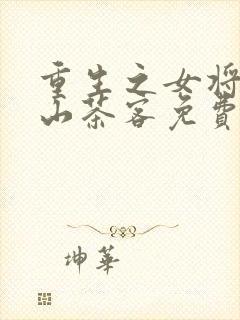 重生之女将
山茶客免费
坤華